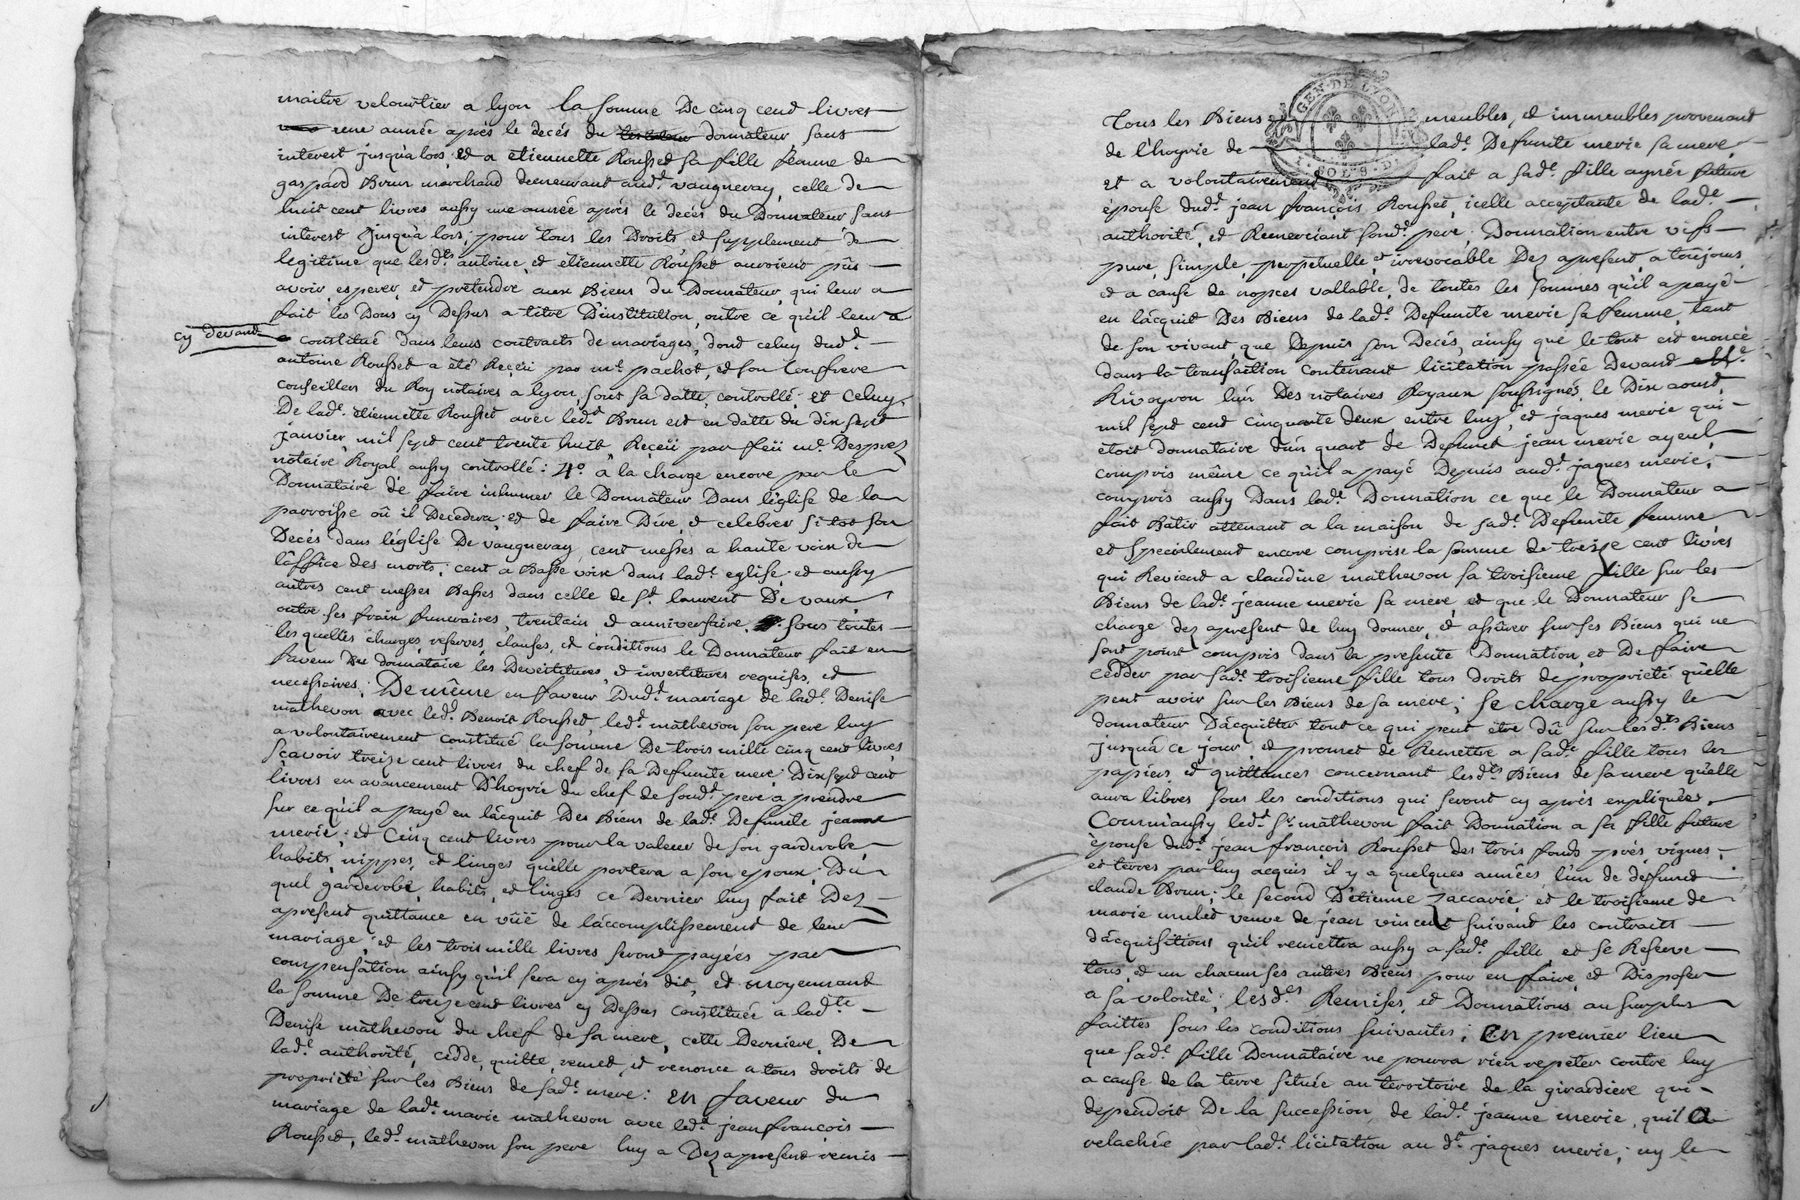 maitre veloutier a lyon la somme De cinq cent livres
une année après le decés du donnateur sans
interest jusqu'a lors; et a etiennette Rousset sa fille femme de
gaspard Brun marchand demeurant aud.t vaugneray, celle de
huit cent livres aussy une année après le decés du Donnateur sans
interest jusqu'a lors; pour tous les Droits et supplement de
legitime que lesd.ts antoine, et etiennette Rousset auroient pûs
avoir, esperer, et prétendre aux Biens du Donnateur, qui leur a
fait les Dons cy Dessus a titre D'institution, outre ce qu'il leur a
cy devant
constitué dans leurs contracts de mariages, dont celuy dud.t
antoine Rousset a été Reçeü par m.e pachot, et son Confrere
conseillers du Roy notaires a lyon, sous sa datte, controllé; et celuy
De lad.e etiennette Rousset avec led.t Brun est en datte du dix sept
janvier mil sept cent trente huit, Reçeü par feü m.e Desprez
notaire Royal aussy controllé: 4.o a la charge encore par le
Donnataire de faire inhumer le Donnateur Dans l'église de la
parroisse où il Decedera; et de faire Dire, et celebrer si tot son
Decés dans l'église De vaugneray, cent messes a haute voix de
l'office des morts; cent a Basse voix dans lad.e eglise; et aussy
autres cent messes Basses dans celle de S.t laurent De vaux,
outre ses fraix funeraires, trentain et anniversaire. sous toutes
les quelles charges, reserves, clauses, et conditions le Donnateur fait en
faveur Du donnataire les Devestitures, et investitures requises, et
necessaires; De même en faveur Dud.t mariage de lad.e Denise
mathevon avec led.t Benoit Rousset, led.t mathevon son pere luy
a volontairement constitué la somme De trois mille cinq cent livres,
sçavoir treize cent livres du chef de sa Defunte mere; Dix sept cent
livres en avancement D'hoyrie du chef de sond.t pere a prendre
sur ce qu'il a payé en l'acquit Des Biens de lad.e Defunte jeanne
merie; et Cinq cent livres pour la valeur de son garderobe,
habits, nippes, et linges qu'elle portera a son epoux; Du
quel garderobe, habits, et linges ce Dernier luy fait Dez
apresent quittance en vüe de l'accomplissement de leur
mariage; et les trois mille livres seront payées par
compensation ainsy qu'il sera cy après dit, et moyennant
la somme De treize cent livres cy Dessus constituée a lad.te
Denise mathevon du chef de sa mere, cette Derniere, De
lad.e authorité, cedde, quitte, remet, et renonce a tous droits de
propriété sur les Biens de sad.e mere: en faveur du
mariage de lad.e marie mathevon avec led.t jean françois
Rousset, led.t mathevon son pere luy a Dez apresent remis
GEN. DE LYON
SOLS
Tous les Biens meubles, et immeubles provenant
de l'hoyrie de lad.e Defunte merie sa mere,
et a volontairement fait a sad.e fille aynée future
épouse dud.t jean françois Rousset, icelle acceptante de lad.e
authorité, et Remerciant sond.t pere; Donnation entre vifs
pure, simple, perpetuelle, et irrevocable Dez apresent, a toujours
et a cause de nopces vallable, de toutes les sommes qu'il a payé
en l'acquit Des Biens de lad.e Defunte merie sa femme, tant
de son vivant, que Depuis son Decés, ainsy que le tout est enoncé
dans la transaction contenant licitation passée Devant
Rivoyron l'un Des notaires Royaux soussignés, le Dix aoust
mil sept cent cinquante deux entre luy, et jaques merie qui
étoit donnataire d'un quart de Defunt jean merie ayeul,
compris même ce qu'il a payé Depuis aud.t jaques merie;
compris aussy Dans lad.e Donnation ce que le Donnateur a
fait Bâtir attenant a la maison de sad.e Defunte femme,
et specialement encore comprise la somme de treize cent livres
qui Revient a claudine mathevon sa troisieme fille sur les
Biens de lad.e jeanne merie sa mere, et que le Donnateur se
charge dez apresent de luy donner, et assûrer sur ses Biens qui ne
sont point compris dans la presente Donnation, et De faire
cedder par sad.e troisieme fille tous droits de propriété qu'elle
peut avoir sur les Biens de sa mere; se charge aussy le
donnateur D'acquitter tout ce qui peut être dû sur lesd.ts Biens
jusqu'a ce jour, et promet de Remettre a sad.e fille tous les
papiers, et quittances concernant lesd.ts Biens de sa mere qu'elle
aura libres sous les conditions qui seront cy après expliquées.
Comm'aussy led.t S.r mathevon fait Donnation a sa fille future
épouse dud.t jean françois Rousset des trois fonds prés, vignes,
et terres par luy acquis il y a quelques années l'un de deffunt
claude Brun; le second D'etienne zaccarie; et le troisieme de
marie mulet veuve de jean vincent suivant les contraits
d'acquisitions qu'il remettra aussy a sad.e fille, et se Reserve
tous, et un chacun ses autres Biens pour en faire, et Disposer
a sa volonté; lesd.es Remises, et Donnations au surplus
faittes sous les conditions suivantes; en premier lieu
que sad.e fille Donnataire ne pourra rien repeter contre luy
a cause de la terre située au territoire de la girardiere qui
dependoit De la succession de lad.e jeanne merie, qu'il a
relachée par lad.e licitation au d.t jaques merie; ny le